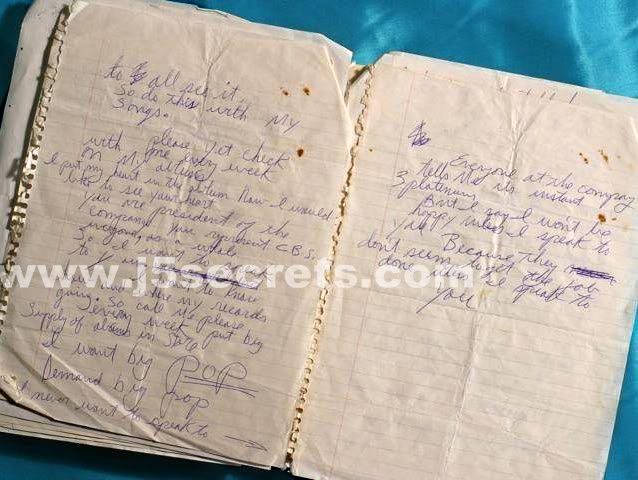 to all see it
so do this with My
songs.
please yet check
with me every week
on My album
I put my heart in the album Now I would
like to see your heart
You are president of the
company You represent CBS,
everyone, as a whole
So I
to know
the my records
going. So call me please
every week put big
Supply of albums in state
I want big POP
Demand big pop
never want to speak to
www.j5secrets.com
Everyone at the company
tells Me its instant
3 platinum,
But I say I won't be
happy until I speak to
you!
Because they
dont seem to get the job
done until I speak to
You